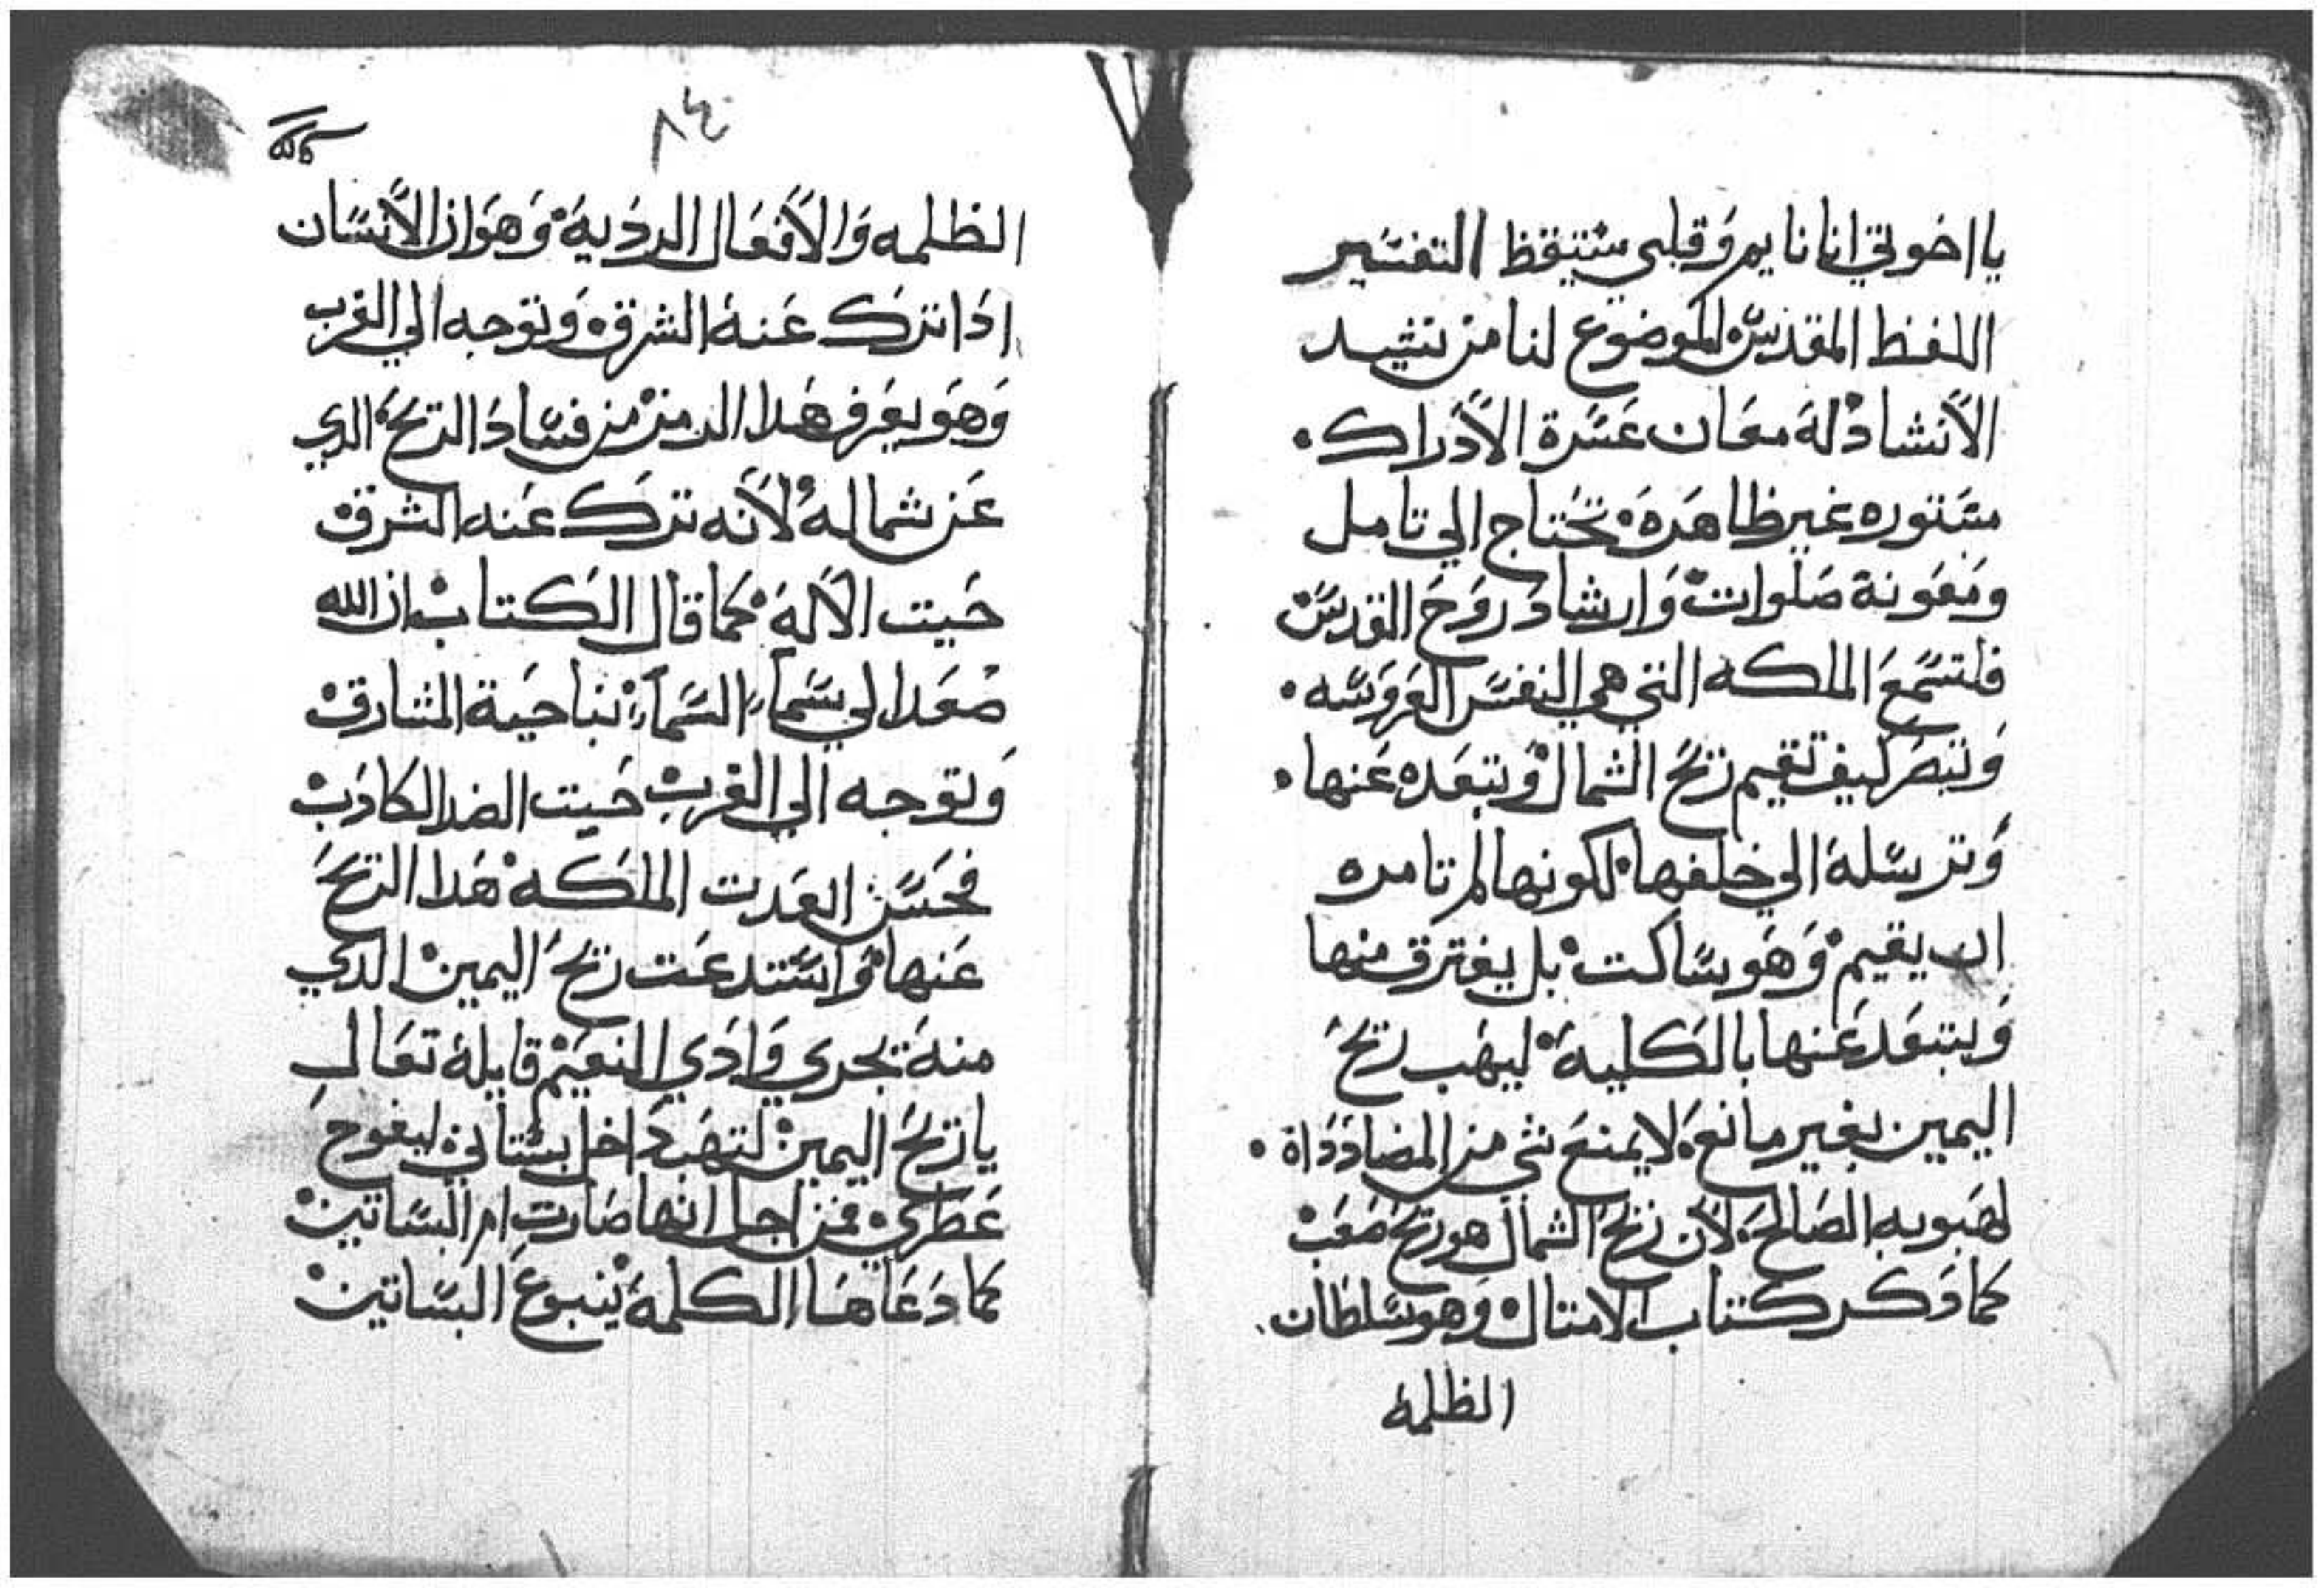 يا اخوتي انا نايم وقلبي مستيقظ التفسير
اللفظ المقدس الموضوع لنا من نشيد
الأنشاد له معان عسرة الأدراك.
مستوره غير ظاهره تحتاج الي تامل
ومعونة صلوات وارشاد روح القدس
فلتسمع الملكه التي هي النفس العروسه.
وتبصر كيف تقيم ريح الشمال وتبعده عنها.
وترسله الي خلفها لكونها لم تامره
ان يقيم وهو ساكت بل يفترق منها
ويبتعد عنها بالكلية ليهب ريح
اليمين بغير مانع لا يمنع شي من المضاددة.
لهبوبه الصالح لأن ريح الشمال هو ريح صعب
كما دكر كتاب الامتال وهو سلطان
الظلمة
٨٤
الظلمه والأفعال الردية وهو ان الأنسان
ادا ترك عنه الشرق وتوجه الي الغرب
وهو يعرف هدا الرمز من فساد الريح الدي
عن شماله لأنه ترك عنه الشرق
حيت الأله كما قال الكتاب ان الله
صعد الي سماء السماء بناحية المشارق
وتوجه الي الغرب حيت الضد الكادب
فحسن ابعدت الملكه هدا الريح
عنها واستدعت ريح اليمين الدي
منه تجري وادي النعيم قايلة تعال
يا ريح اليمين لتهب داخل بستاني ليفوح
عطري فمن اجل انها صارت ام البساتين
كما دعاها الكلمة ينبوع البساتين